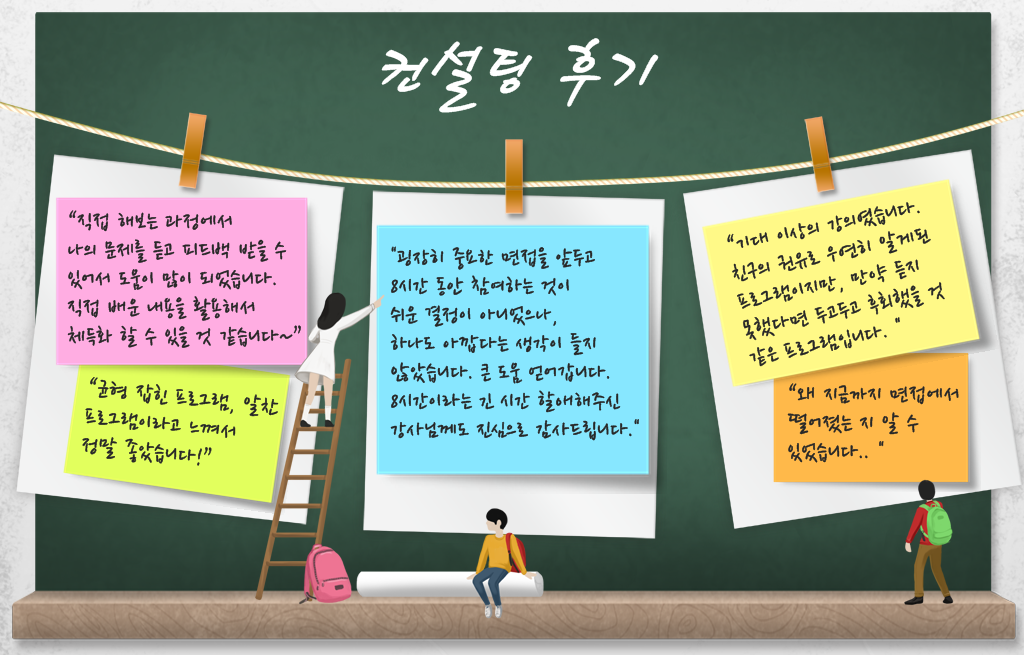 컨설팅 후기
“직접 해보는 과정에서
나의 문제를 듣고 피드백 받을 수
있어서 도움이 많이 되었습니다.
직접 배운 내용을 활용해서
체득화 할 수 있을 것 같습니다~”
“균형 잡힌 프로그램, 알찬
프로그램이라고 느껴서
정말 좋았습니다!”
"굉장히 중요한 면접을 앞두고
8시간 동안 참여하는 것이
쉬운 결정이 아니었으나,
하나도 아깝다는 생각이 들지
않았습니다. 큰 도움 얻어갑니다.
8시간이라는 긴 시간 할애해주신
강사님께도 진심으로 감사드립니다."
"기대 이상의 강의였습니다.
친구의 권유로 우연히 알게된
프로그램이지만, 만약 듣지
못했다면 두고두고 후회했을 것
같은 프로그램입니다. "
"왜 지금까지 면접에서
떨어졌는 지 알 수
있었습니다.. "